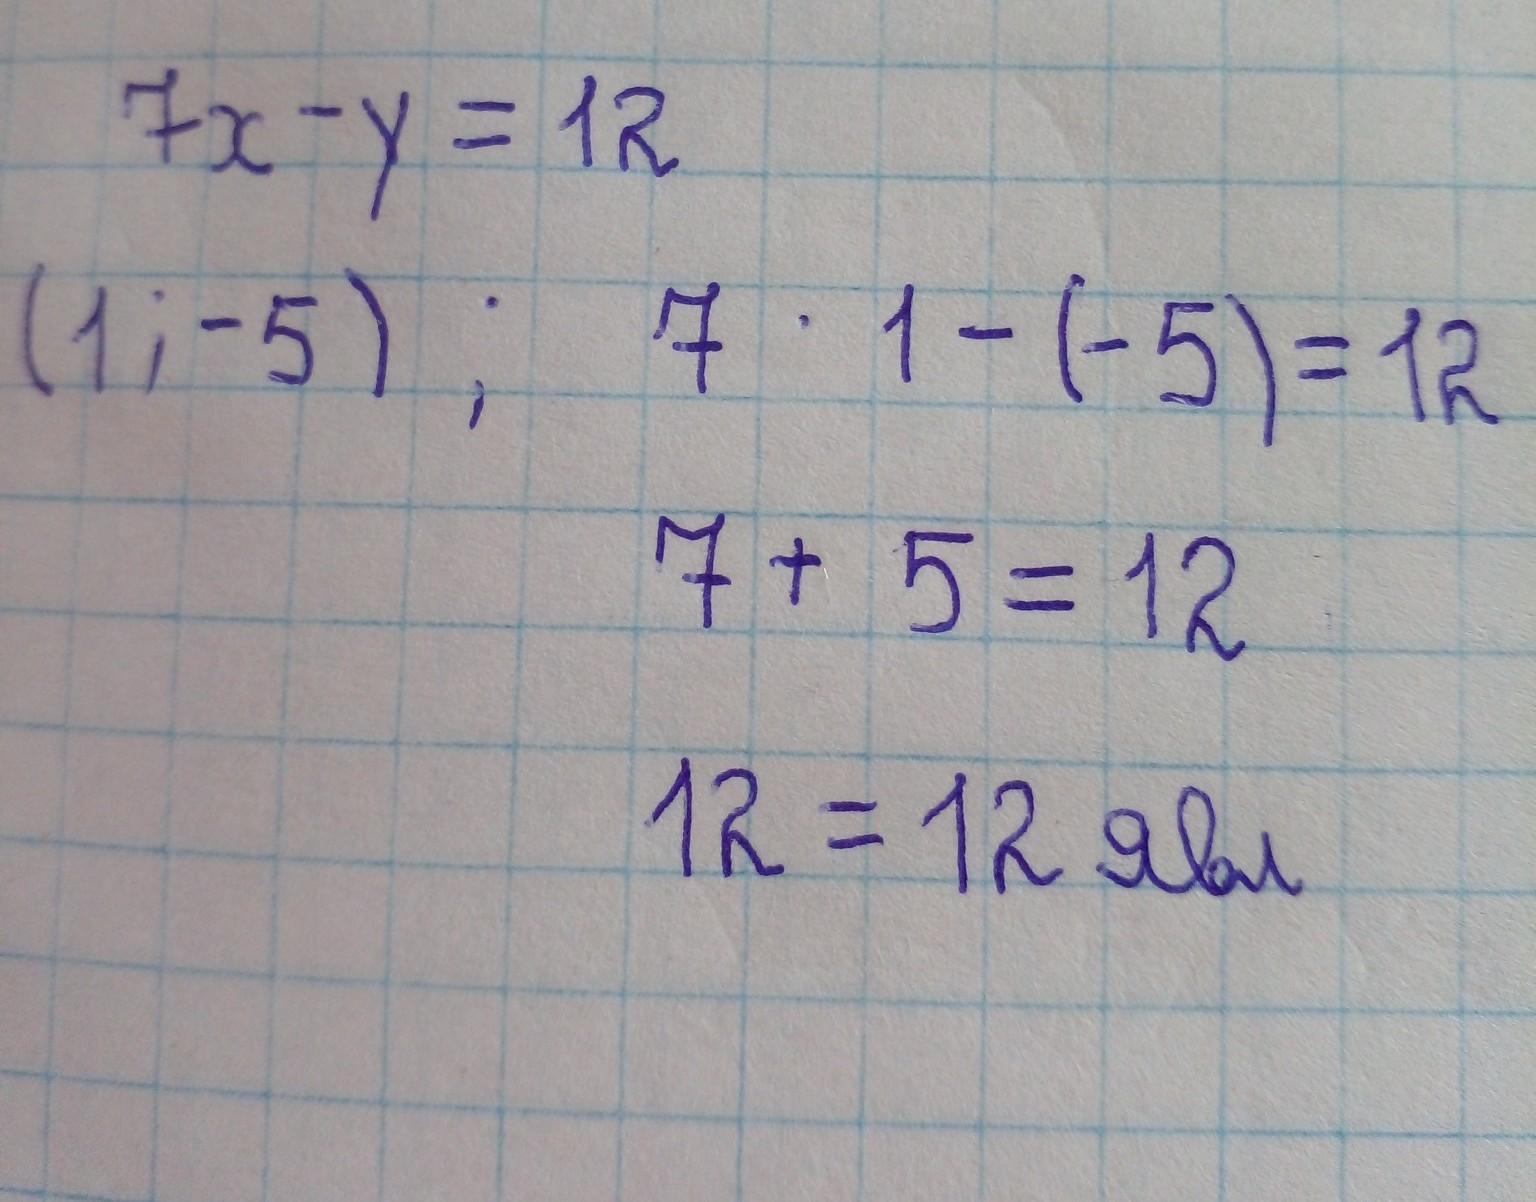 7x - y = 12
(1; -5) ; 7 · 1 - (-5) = 12
7 + 5 = 12
12 = 12 явл